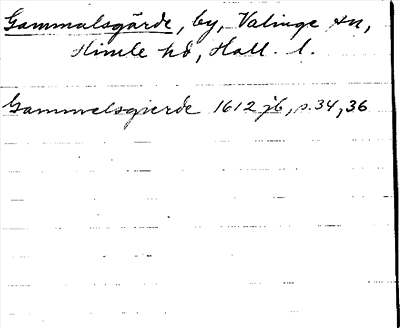 Gammalsgärde, by, Valinge sn,
Himle hd, Hall. l.
Gammelsgierde 1612 jb, s. 34, 36